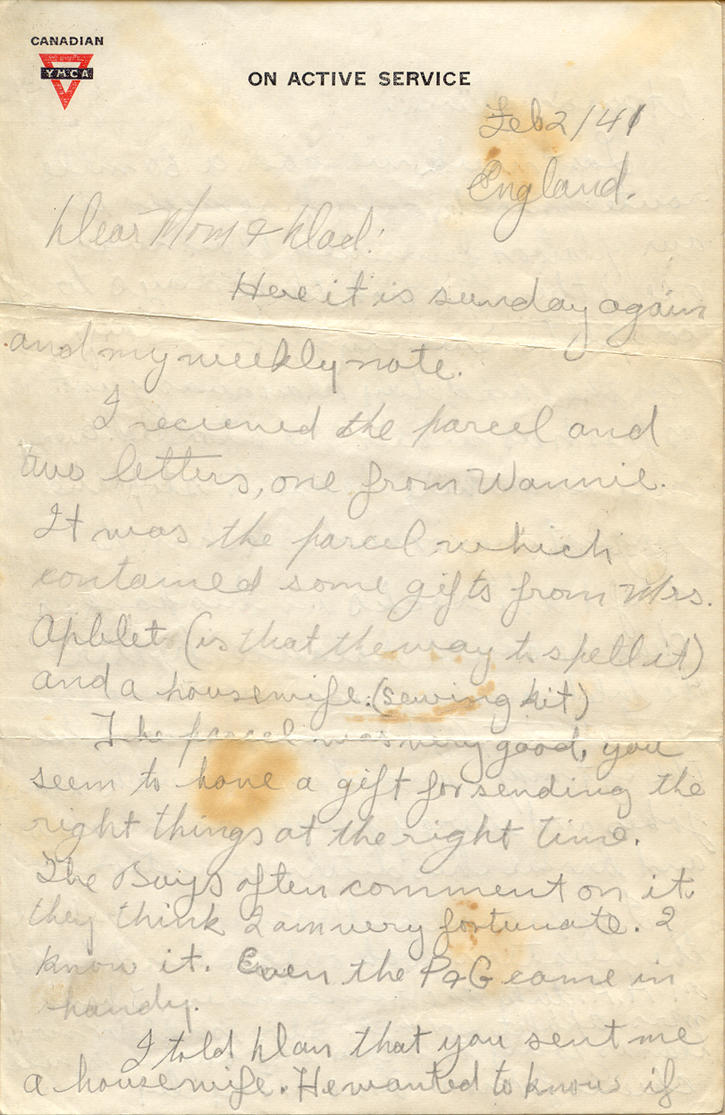 CANADIAN
YMCA
ON ACTIVE SERVICE
Feb 2/41
England.
Dear Mom & Dad:
Here it is sunday again
and my weekly note.
I recieved the parcel and
two letters, one from Wannie.
It was the parcel which
contained some gifts from Mrs.
Apblet (is that the way to spell it)
and a housewife. (sewing kit)
The parcel was very good, you
seem to have a gift for sending the
right things at the right time.
The Boys often comment on it
they think I am very fortunate. I
know it. Even the P&G came in
handy.
I told Dan that you sent me
a housewife. He wanted to know if